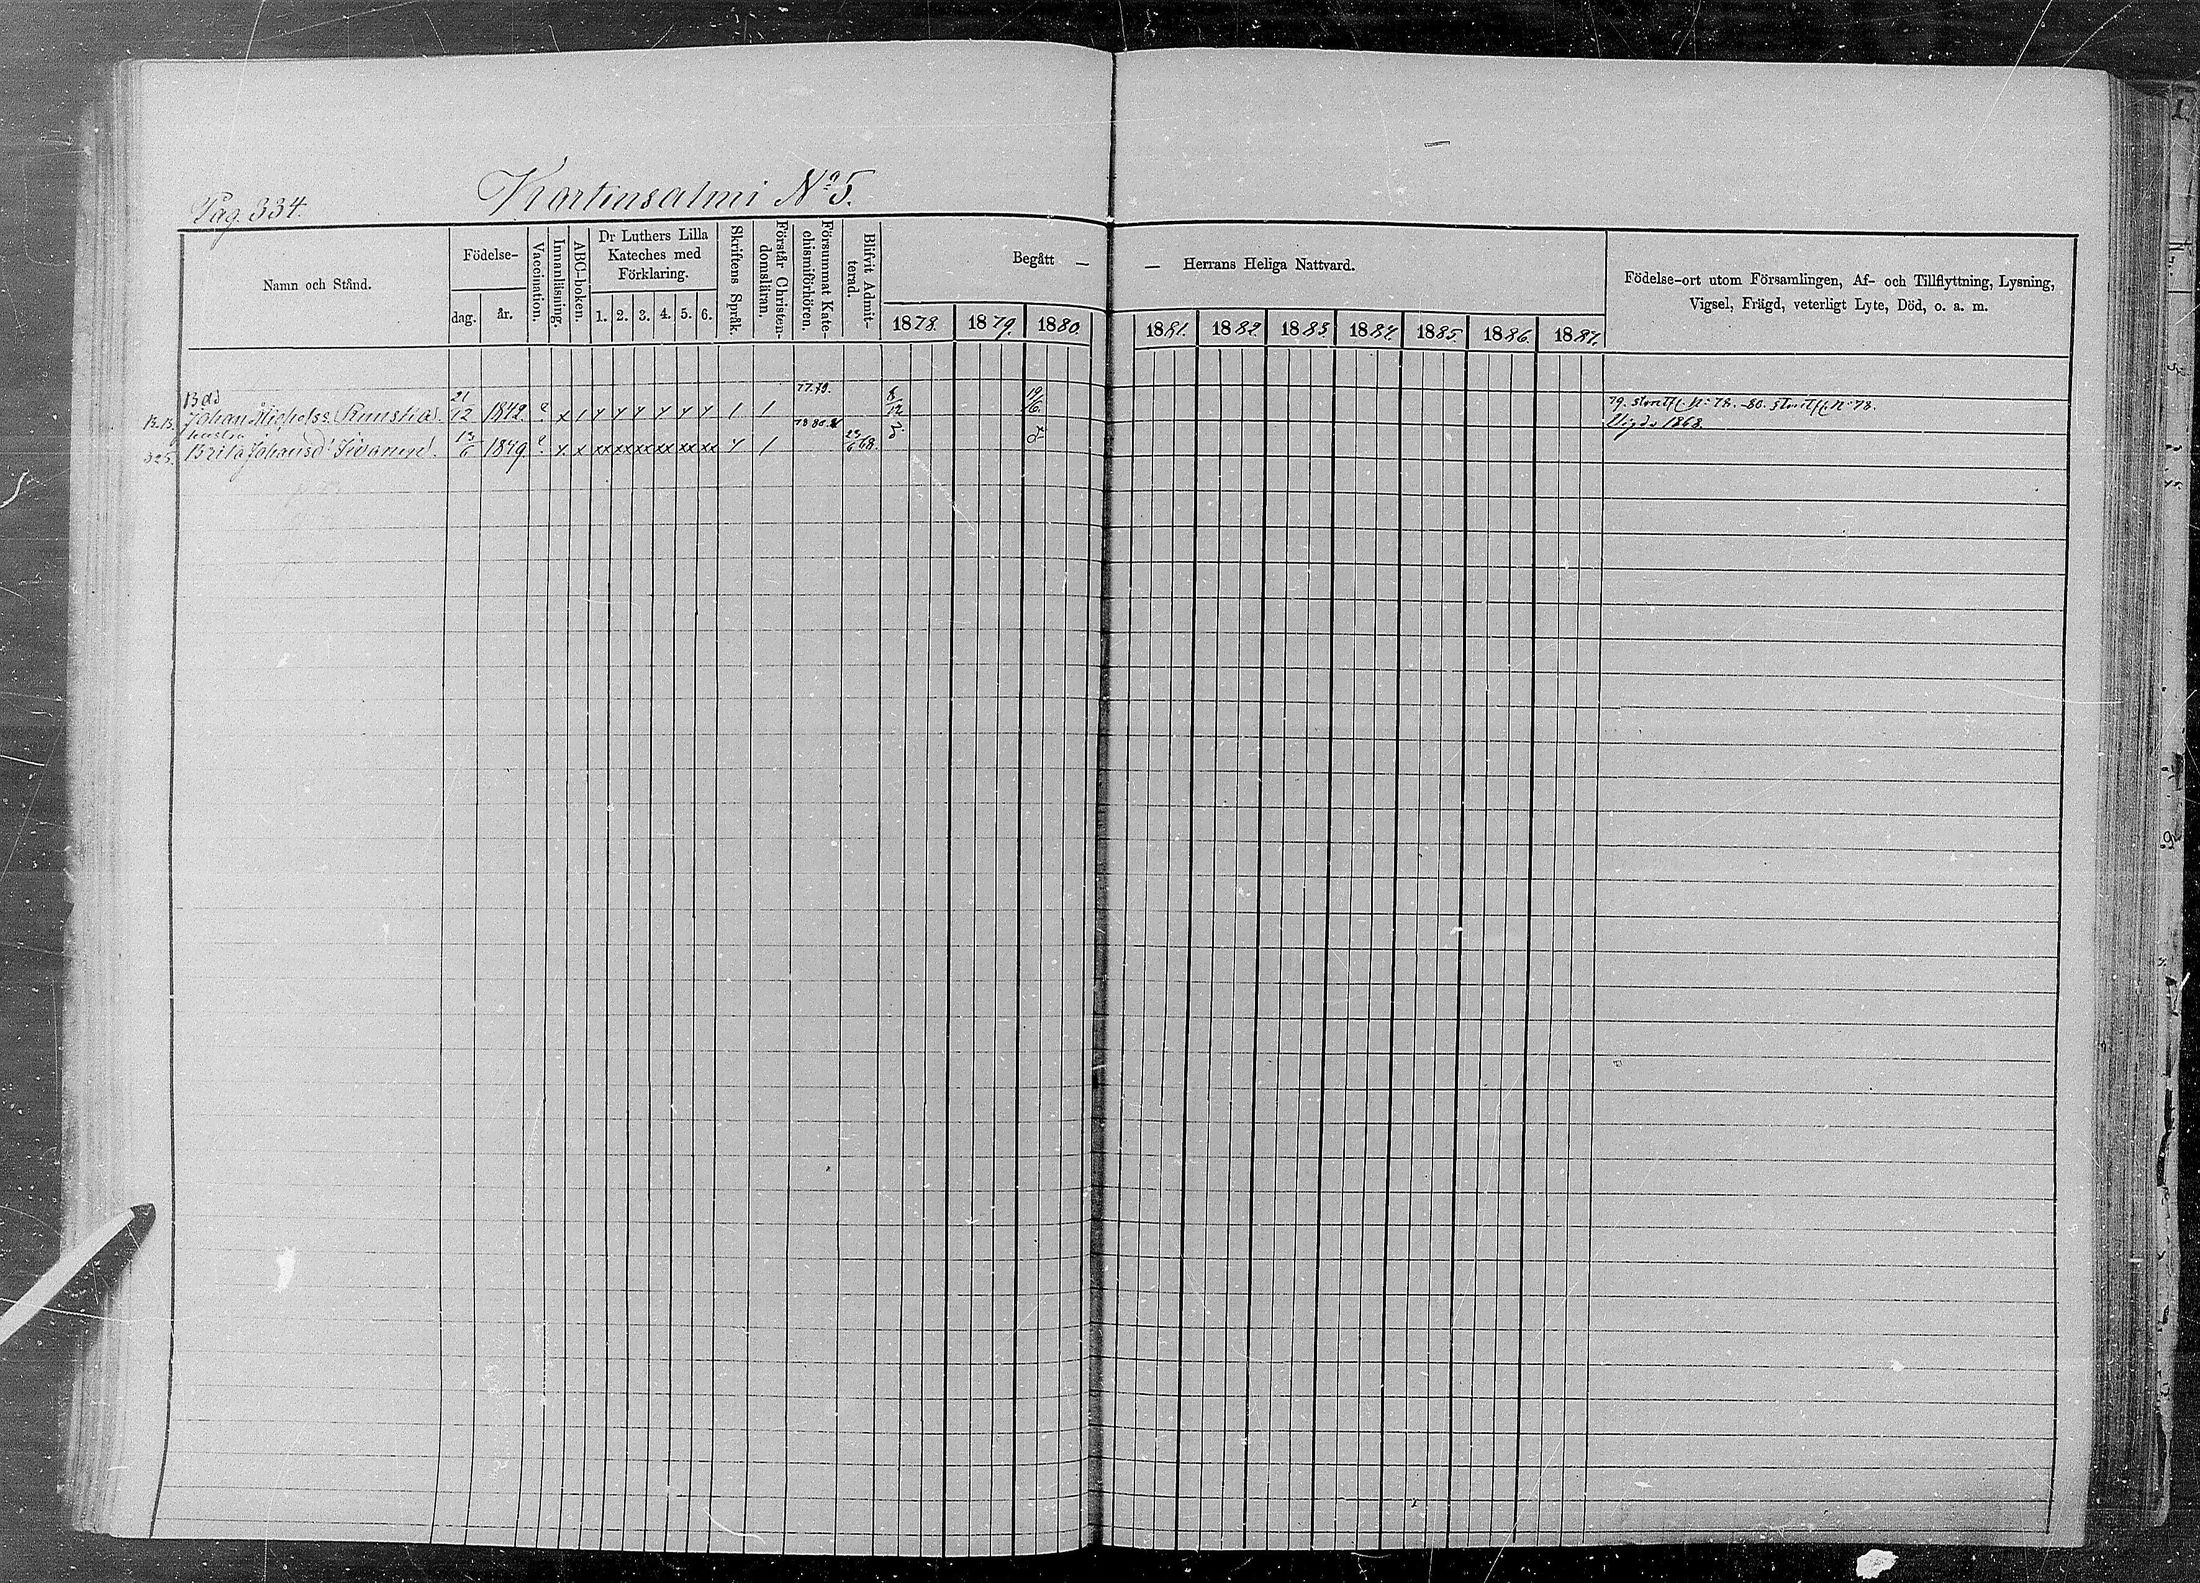 Pag. 334.
Kortensalmi No 5.
Namn och Stånd.
Födelse-
dag.
år.
Vaccination.
Innanläsning.
ABC-boken.
Dr Luthers Lilla
Kateches med
Förklaring.
1. 2. 3. 4. 5. 6.
Skriftens Språk.
Förstår Christen-
domsläran.
Försummat Kate-
chismiförhören.
Blifvit Admit-
terad.
Begått —
— Herrans Heliga Nattvard.
1878. 1879. 1880 1881. 1882. 1883. 1884. 1885. 1886. 1887.
Födelse-ort utom Församlingen, Af- och Tillflyttning, Lysning,
Vigsel, Frägd, veterligt Lyte, Död, o. a. m.
Johan 21/12 1842. ? x 1 77.79. 8/12 19/16
Vigda 1868.
hustru
325. Brita Johansd:r Sivonen. 13/6 1849. ? x x xx xx xx xx xx xx 1 23/6 68.